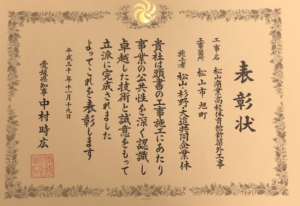 表彰状
工事名 松山商業高校体育館新築外工事
工事箇所 松山市 旭町
施工者 松山・杉野大進共同企業体
貴社は頭書の工事施工にあたり
事業の公共性を深く認識し
卓越した技術と誠意をもって
立派に完成されました
よってこれを表彰します
平成三十年十一月十九日
愛媛県知事 中村時広